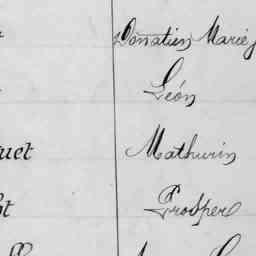 Donatien Marie
Léon
uet Mathurin
Prosper